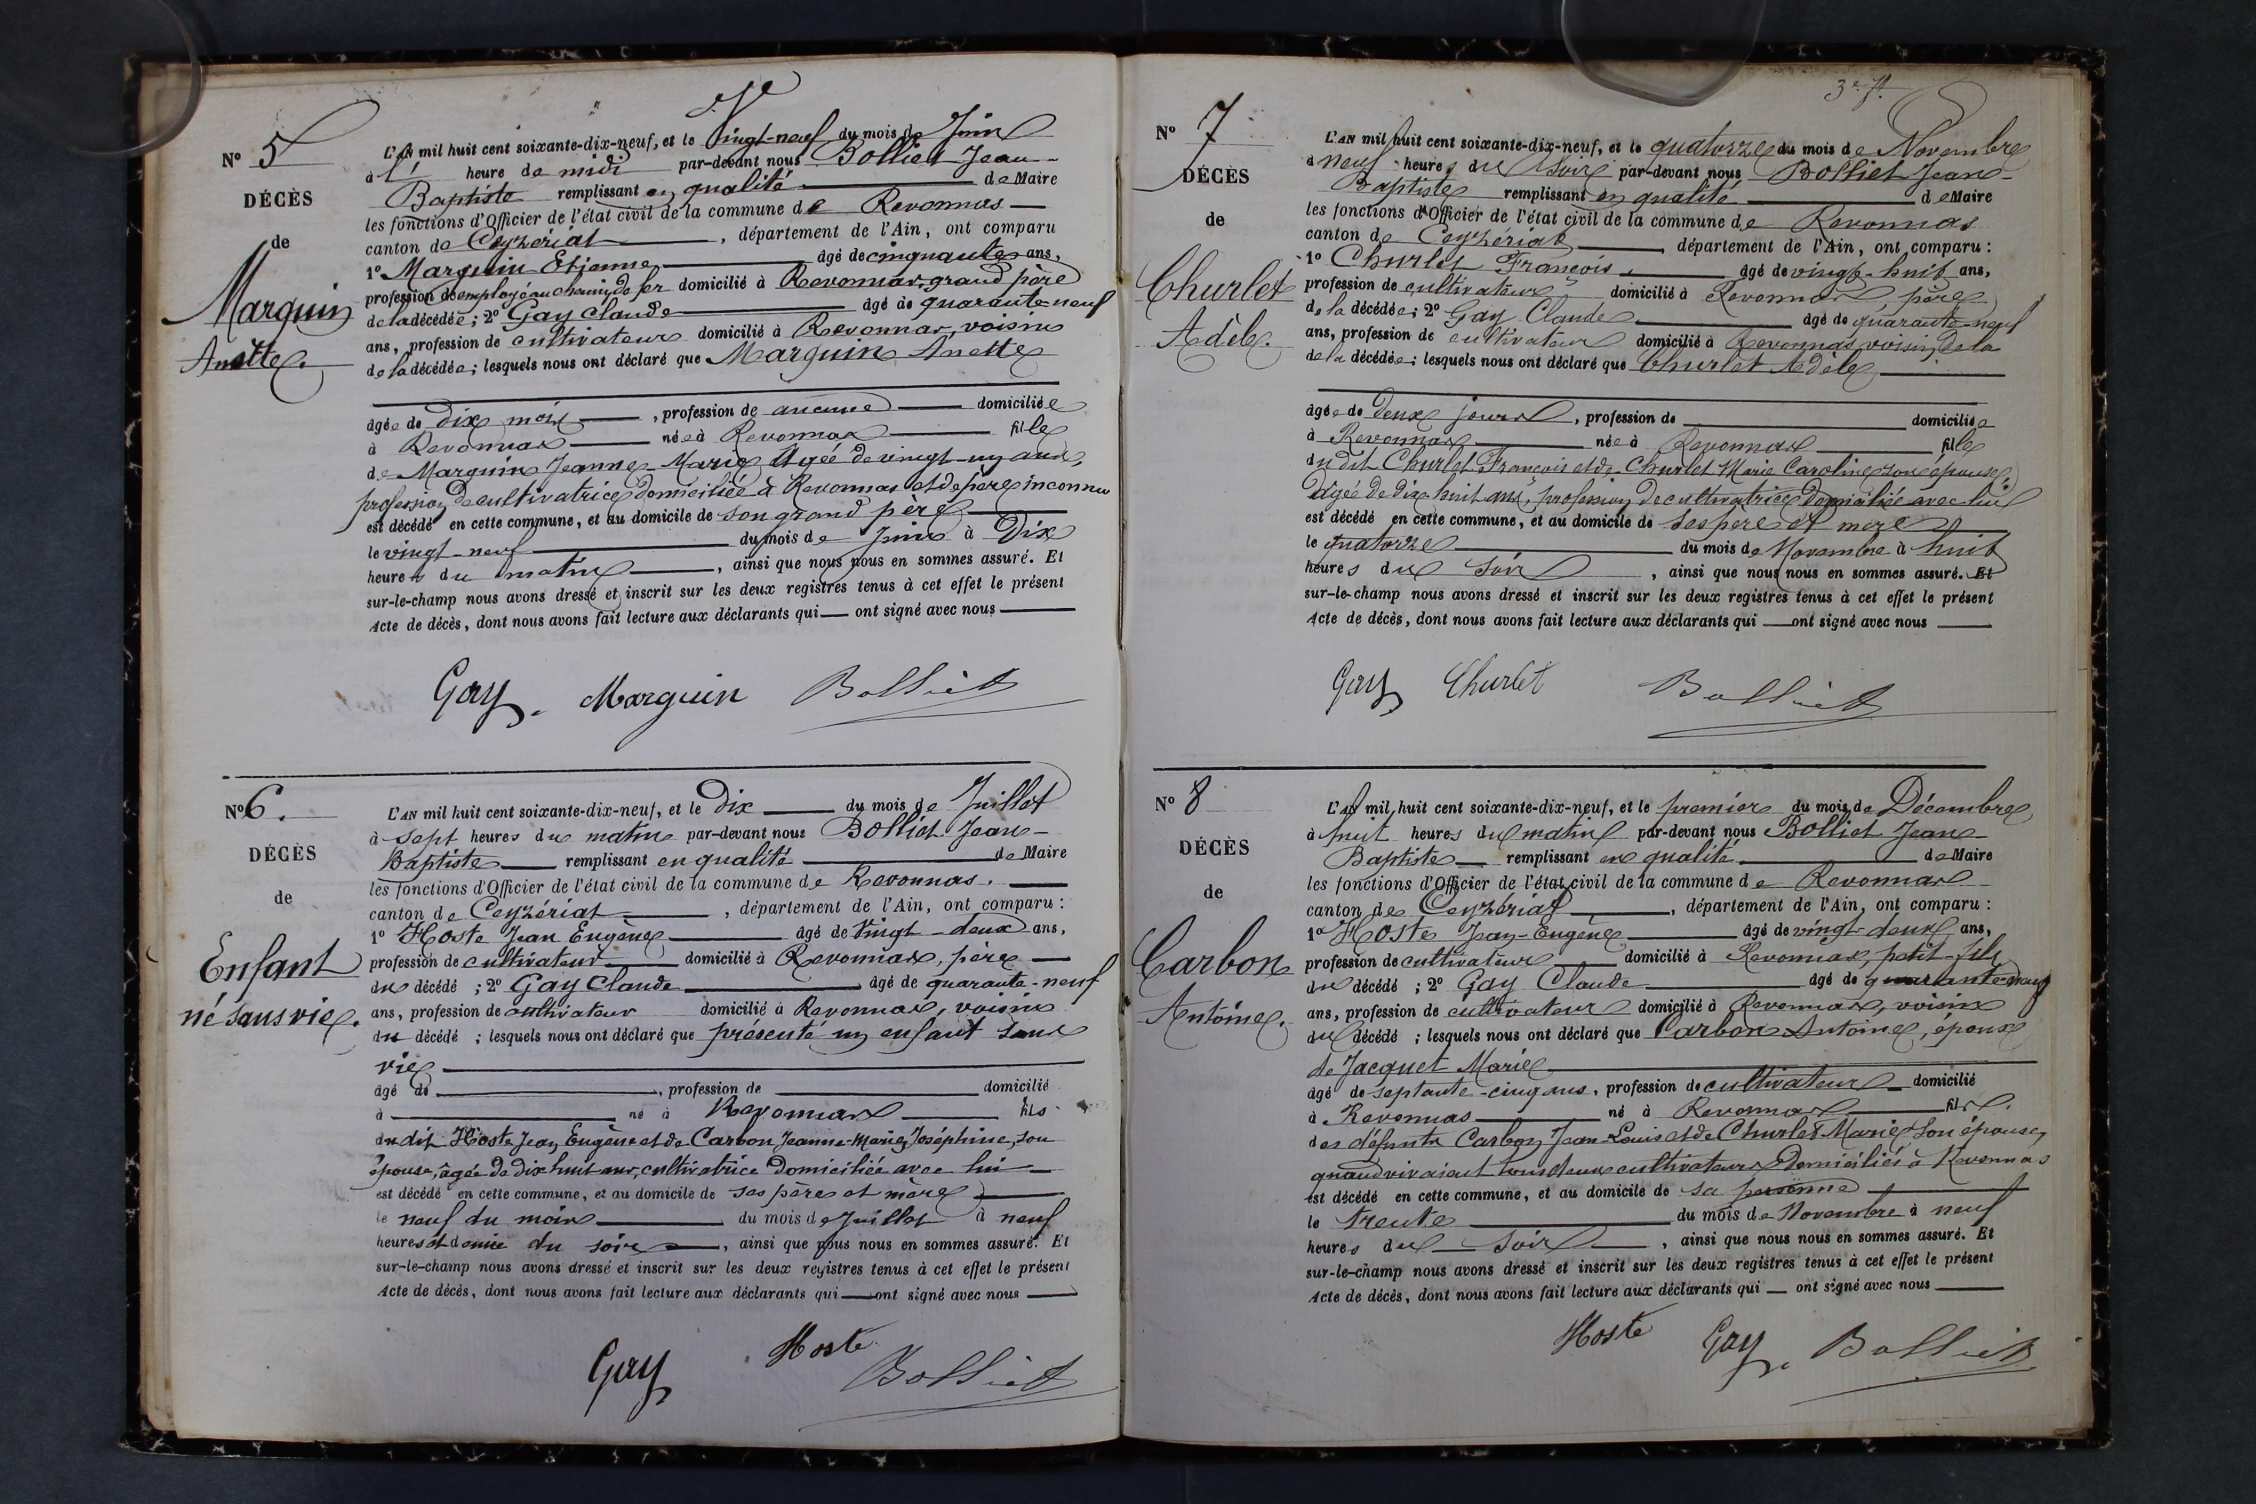 Nº 5
DÉCÈS
de
Marguin
Anette.
L'AN mil huit cent soixante-dix-neuf, et le Vingt-neuf du mois de Juin
à 1 heure de midi par-devant nous Bolliet Jean-
Baptiste remplissant en qualité de Maire
les fonctions d'Officier de l'état civil de la commune de Revonnas
canton de Ceyzériat, département de l'Ain, ont comparu
1º Marguin Etienne âgé de cinquante ans,
profession d'employé au chemin de fer domicilié à Revonnas, grand père
de la décédée; 2º Gay Claude âgé de quarante-neuf
ans, profession de cultivateur domicilié à Revonnas, voisin
de la décédée; lesquels nous ont déclaré que Marguin Anette
âgée de dix mois, profession de aucune domiciliée
à Revonnas née à Revonnas fille
de Marguin Jeanne-Marie, Agée de vingt-un ans,
profession de cultivatrice domiciliée à Revonnas et de père inconnu
est décédé en cette commune, et au domicile de son grand père
le vingt-neuf du mois de Juin à Dix
heures du matin, ainsi que nous nous en sommes assuré. Et
sur-le-champ nous avons dressé et inscrit sur les deux registres tenus à cet effet le présent
Acte de décès, dont nous avons fait lecture aux déclarants qui ont signé avec nous
Gay. Marguin Bolliet
Nº 6.
DÉCÈS
de
Enfant
né sans vie.
L'AN mil huit cent soixante-dix-neuf, et le Dix du mois de Juillet
à sept heures du matin par-devant nous Bolliet Jean-
Baptiste remplissant en qualité de Maire
les fonctions d'Officier de l'état civil de la commune de Revonnas.
canton de Ceyzériat, département de l'Ain, ont comparu:
1º Hoste Jean Eugène âgé de Vingt-deux ans,
profession de cultivateur domicilié à Revonnas, père
du décédé; 2º Gay Claude âgé de quarante-neuf
ans, profession de cultivateur domicilié à Revonnas, voisin
du décédé; lesquels nous ont déclaré que présenté un enfant sans
vie
âgé de, profession de domicilié
à né à Revonnas fils
du dit Hoste Jean Eugène et de Carbon Jeanne-Marie Joséphine, son
épouse, âgée de dix huit ans, cultivatrice Domiciliée avec lui
est décédé en cette commune, et au domicile de ses père et mère
le neuf du mois du mois de Juillet à neuf
heures et demie du soir, ainsi que nous nous en sommes assuré. Et
sur-le-champ nous avons dressé et inscrit sur les deux registres tenus à cet effet le présent
Acte de décès, dont nous avons fait lecture aux déclarants qui ont signé avec nous
Gay Hoste Bolliet
Nº 7
DÉCÈS
de
Churlet
Adèle.
L'AN mil huit cent soixante-dix-neuf, et le quatorze du mois de Novembre
à neuf heures du soir par-devant nous Bolliet Jean-
Baptiste remplissant en qualité de Maire
les fonctions d'Officier de l'état civil de la commune de Revonnas
canton de Ceyzériat, département de l'Ain, ont comparu:
1º Churlet François âgé de vingt-huit ans,
profession de cultivateur domicilié à Revonnas, père
de la décédée; 2º Gay Claude âgé de quarante-neuf
ans, profession de cultivateur domicilié à Revonnas voisin de la
de la décédée; lesquels nous ont déclaré que Churlet Adèle
âgée de deux jours, profession de domiciliée
à Revonnas née à Revonnas fille
du dit Churlet François et de Churlet Marie Caroline son épouse,
âgée de dix huit ans, profession de cultivatrice domiciliée avec lui
est décédé en cette commune, et au domicile de ses pere et mere
le quatorze du mois de Novembre à huit
heures du soir, ainsi que nous nous en sommes assuré. Et
sur-le-champ nous avons dressé et inscrit sur les deux registres tenus à cet effet le présent
Acte de décès, dont nous avons fait lecture aux déclarants qui ont signé avec nous
Gay Churlet Bolliet
Nº 8
DÉCÈS
de
Carbon
Antoine.
L'AN mil huit cent soixante-dix-neuf, et le premier du mois de Décembre
à huit heures du matin par-devant nous Bolliet Jean-
Baptiste remplissant en qualité de Maire
les fonctions d'Officier de l'état civil de la commune de Revonnas
canton de Ceyzériat, département de l'Ain, ont comparu:
1º Hoste Jean-Eugène âgé de vingt-deux ans,
profession de cultivateur domicilié à Revonnas, petit-fils
du décédé; 2º Gay Claude âgé de quarante-neuf
ans, profession de cultivateur domicilié à Revonnas, voisin
du décédé; lesquels nous ont déclaré que Carbon Antoine, époux
de Jacquet Marie
âgé de septante-cinq ans, profession de cultivateur domicilié
à Revonnas né à Revonnas fils
des défunts Carbon Jean-Louis et de Churlet Marie son épouse,
quand vivaient tous deux cultivateurs Domiciliés à Revonnas
est décédé en cette commune, et au domicile de sa personne
le trente du mois de Novembre à neuf
heures du soir, ainsi que nous nous en sommes assuré. Et
sur-le-champ nous avons dressé et inscrit sur les deux registres tenus à cet effet le présent
Acte de décès, dont nous avons fait lecture aux déclarants qui ont signé avec nous
Hoste Gay. Bolliet